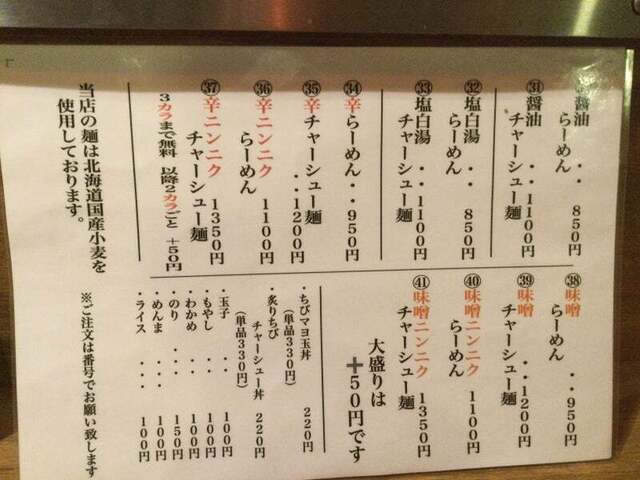 醤油
らーめん ・・ 850円
㉛醤油
チャーシュー麺 ・・1100円
㉜塩白湯
らーめん ・・ 850円
㉝塩白湯
チャーシュー麺 ・・1100円
㉞辛らーめん・・950円
㉟辛チャーシュー麺
・・1200円
㊱辛ニンニク
らーめん 1100円
㊲辛ニンニク
チャーシュー麺 1350円
3カラまで無料 以降2カラごと +50円
㊳味噌
らーめん ・・950円
㊴味噌
チャーシュー麺 ・・1200円
㊵味噌ニンニク
らーめん 1100円
㊶味噌ニンニク
チャーシュー麺 1350円
大盛りは
+50円です
・ちびマヨ玉丼 220円
(単品330円)
・炙りちび
チャーシュー丼 220円
(単品330円)
・玉子 ・・・ 100円
・もやし ・・・ 100円
・わかめ ・・・ 100円
・のり ・・・ 150円
・めんま ・・・ 100円
・ライス ・・・ 100円
当店の麺は北海道国産小麦を
使用しております。
※ご注文は番号でお願い致します